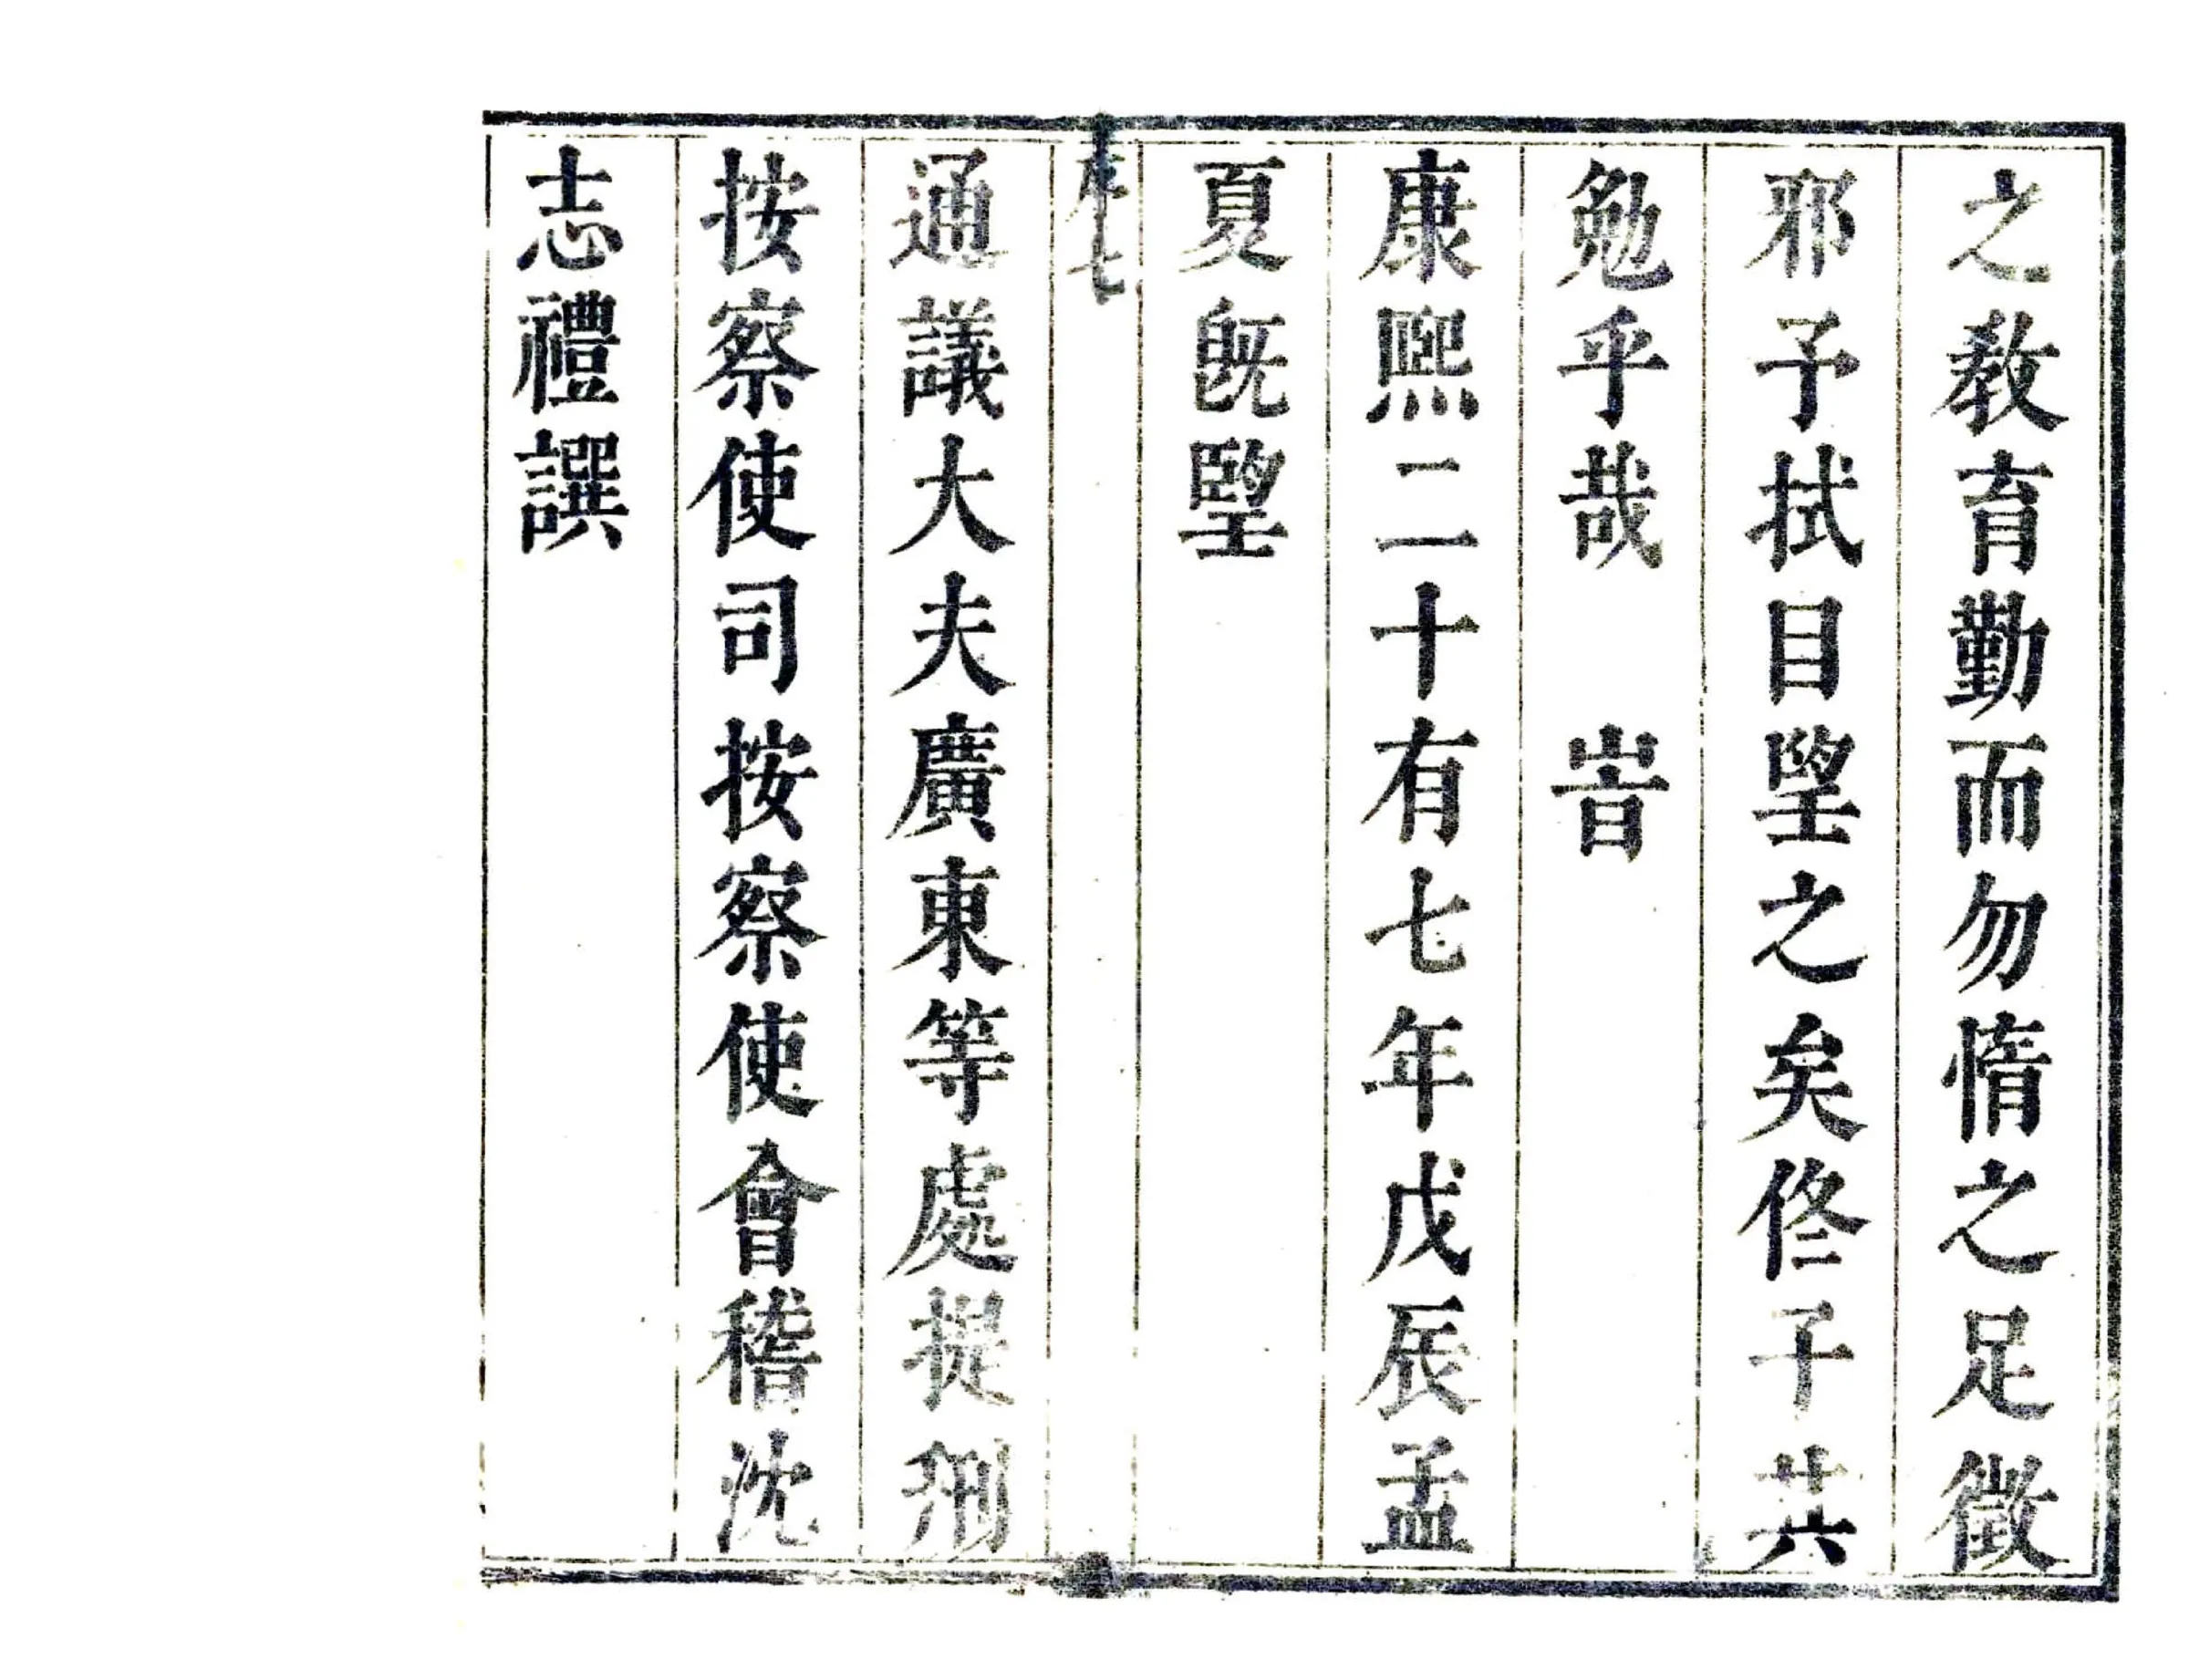 之教育勤而勿惰之足徵
邪予拭目朢之矣佟子其
勉乎哉 旹
康熙二十有七年戊辰孟
夏旣朢
序七
通議大夫廣東等處提刑
按察使司按察使會稽沈
志禮譔